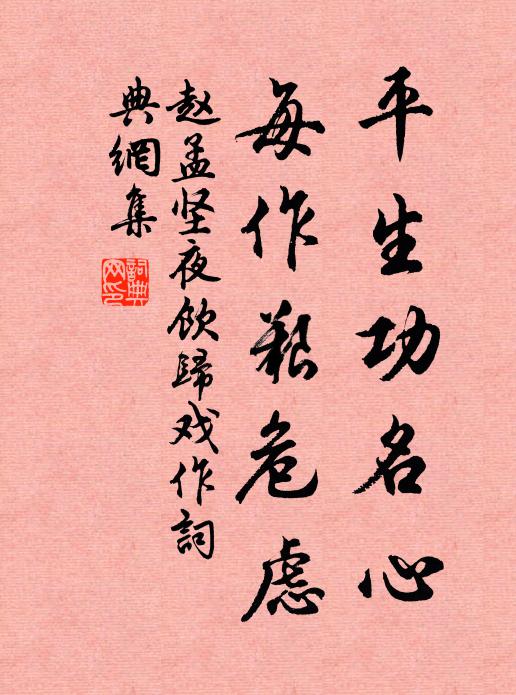 平生功名心
每作艰危虑
赵孟坚夜饮歸戏作詞
典網集
詞典
网印